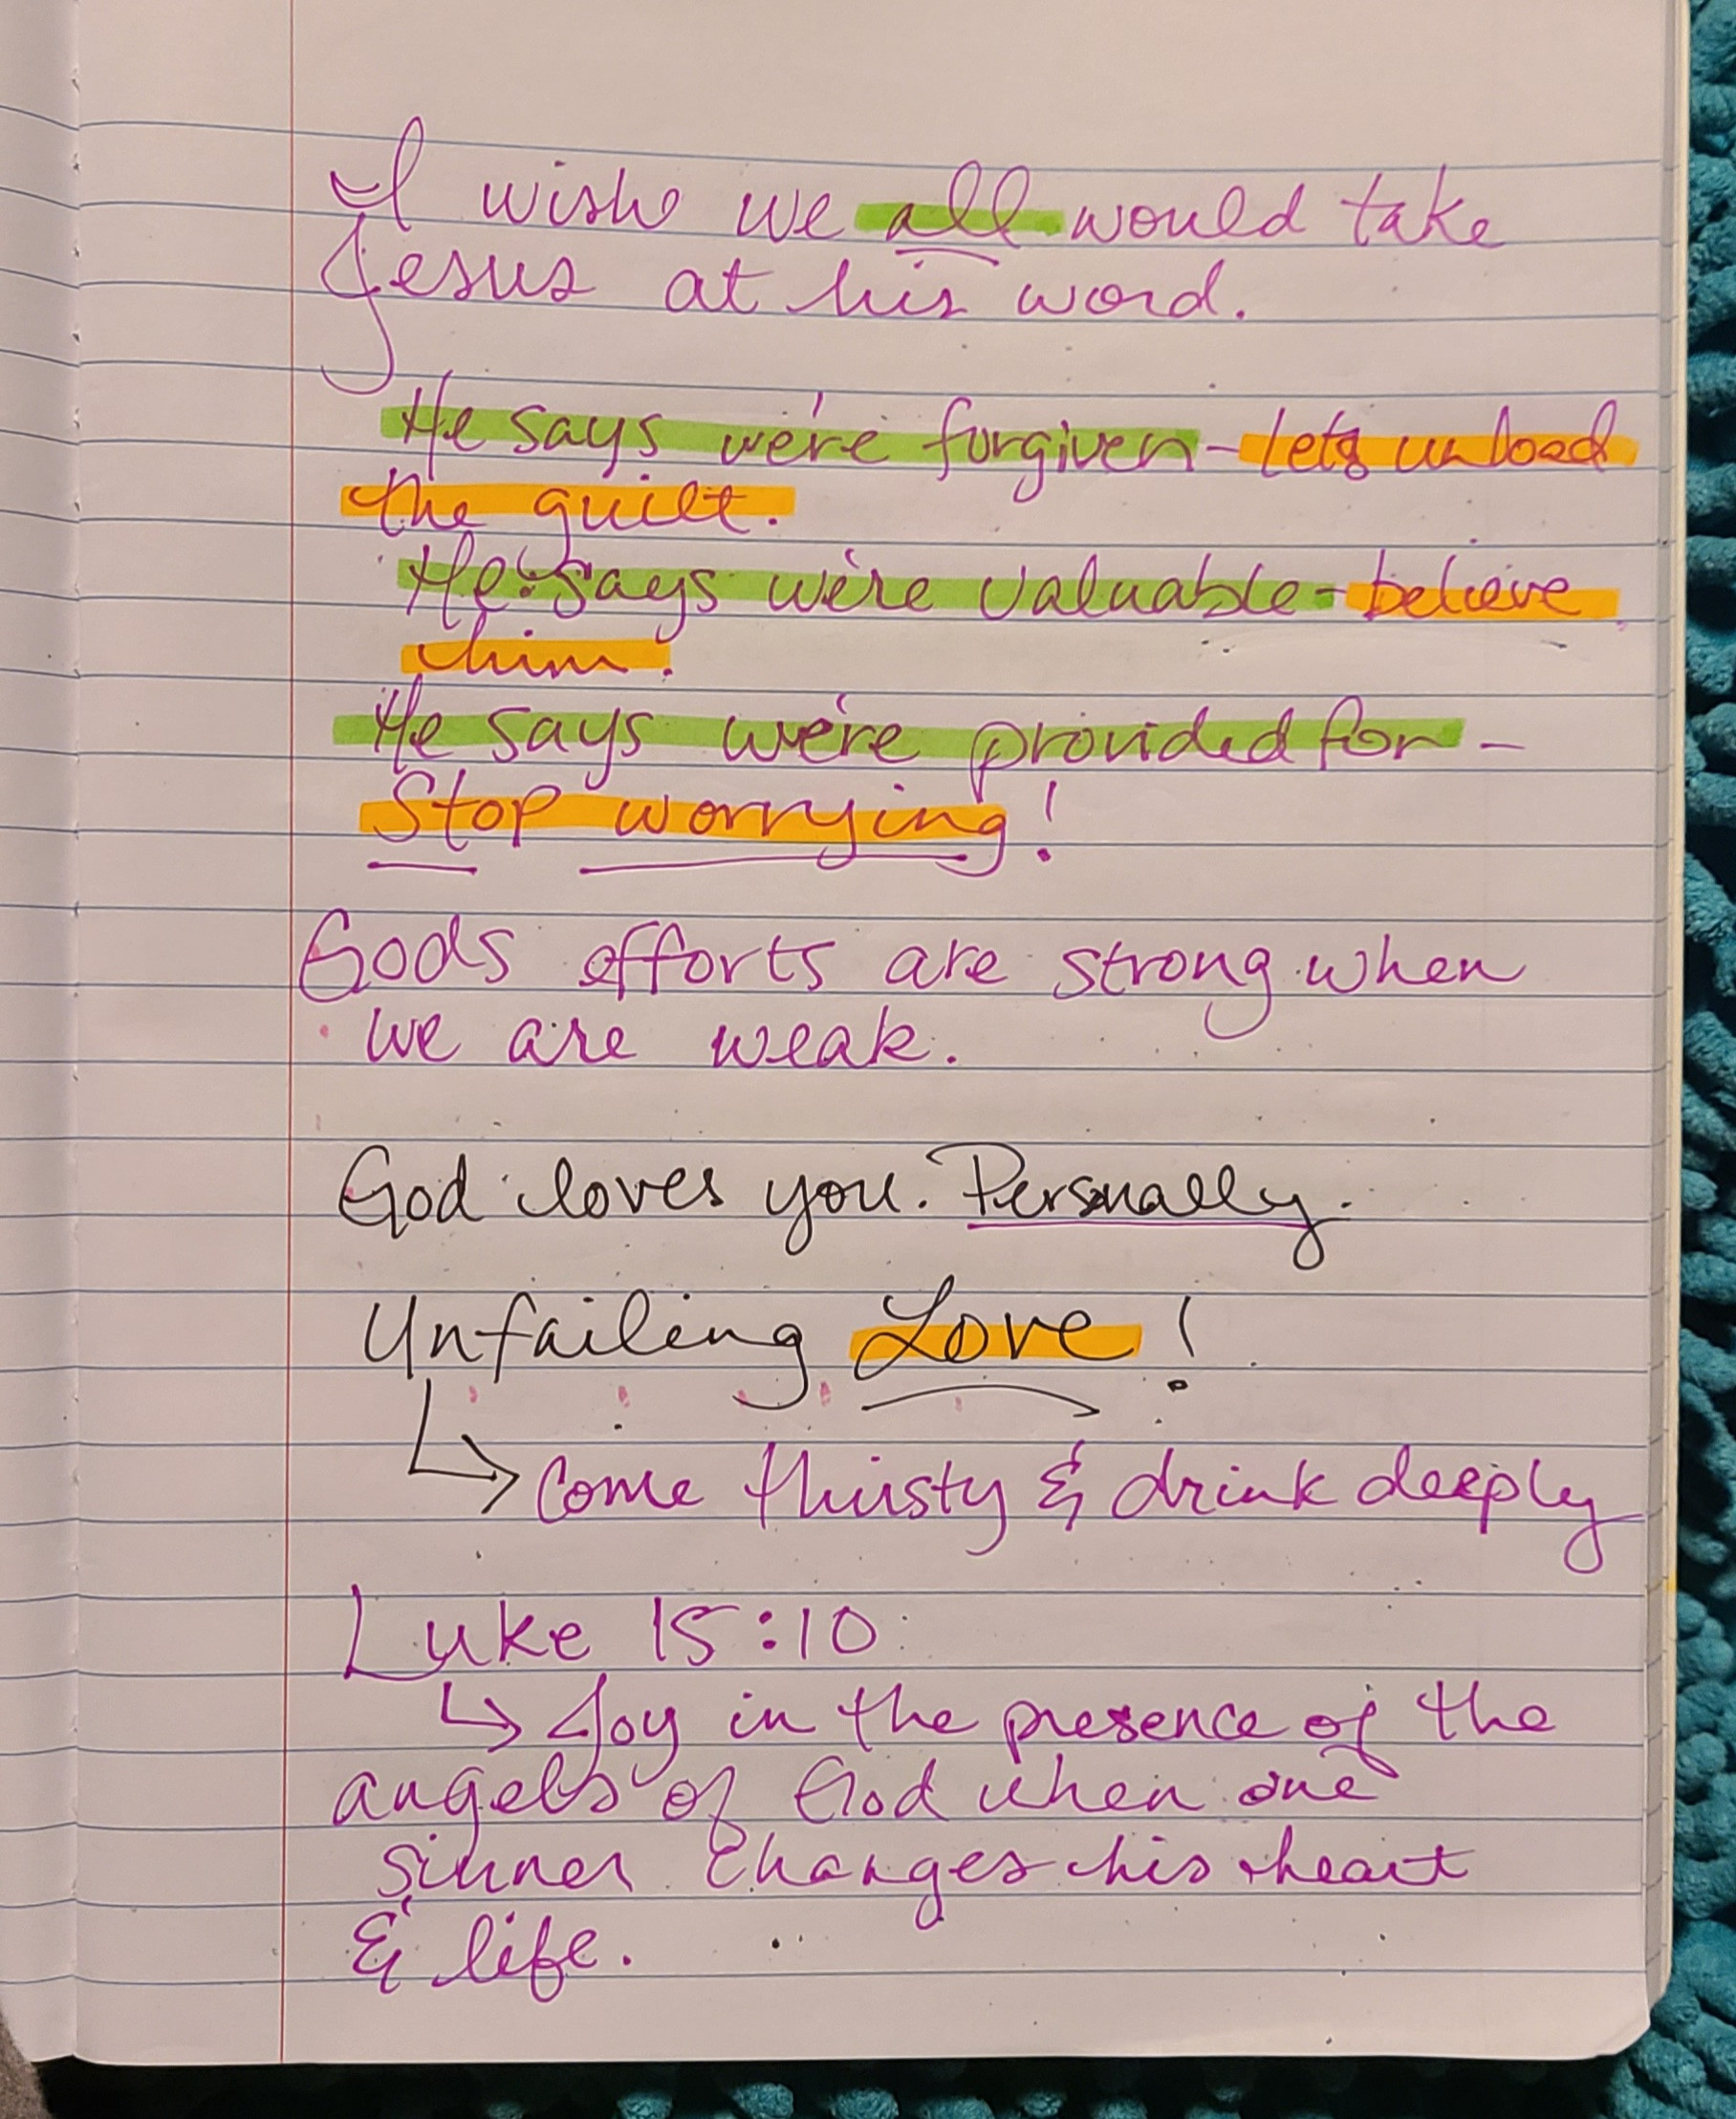 I wish we all would take
Jesus at his word.
He says we're forgiven - lets unload
the guilt.
He says we're valuable - believe
him.
He says we're provided for -
Stop worrying!
Gods efforts are strong when
we are weak.
God loves you. Personally.
Unfailing Love!
↳ Come thirsty & drink deeply
Luke 15:10
↳ Joy in the presence of the
angels of God when one
sinner changes his heart
& life.